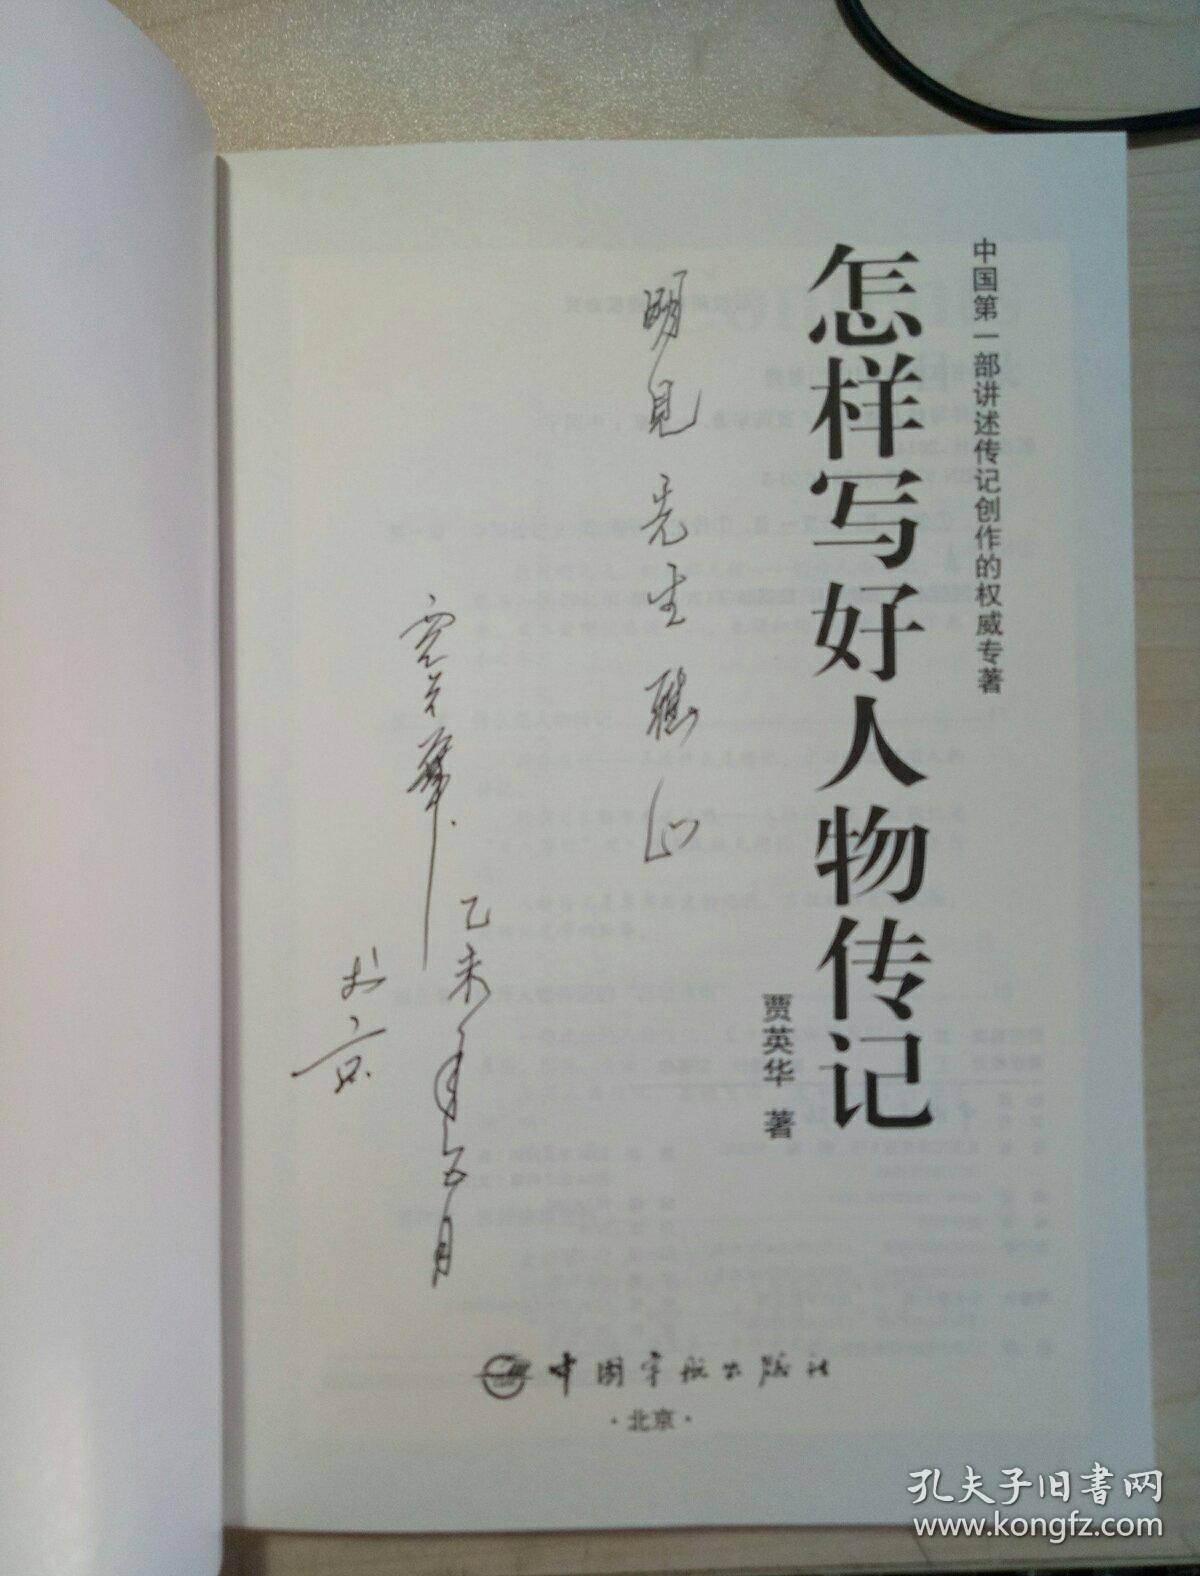 中国第一部讲述传记创作的权威专著
怎样写好人物传记
贾英华 著
明见先生雅正
贾英华
乙未年五月
于京
中国宇航出版社
·北京·
孔夫子旧书网
www.kongfz.com